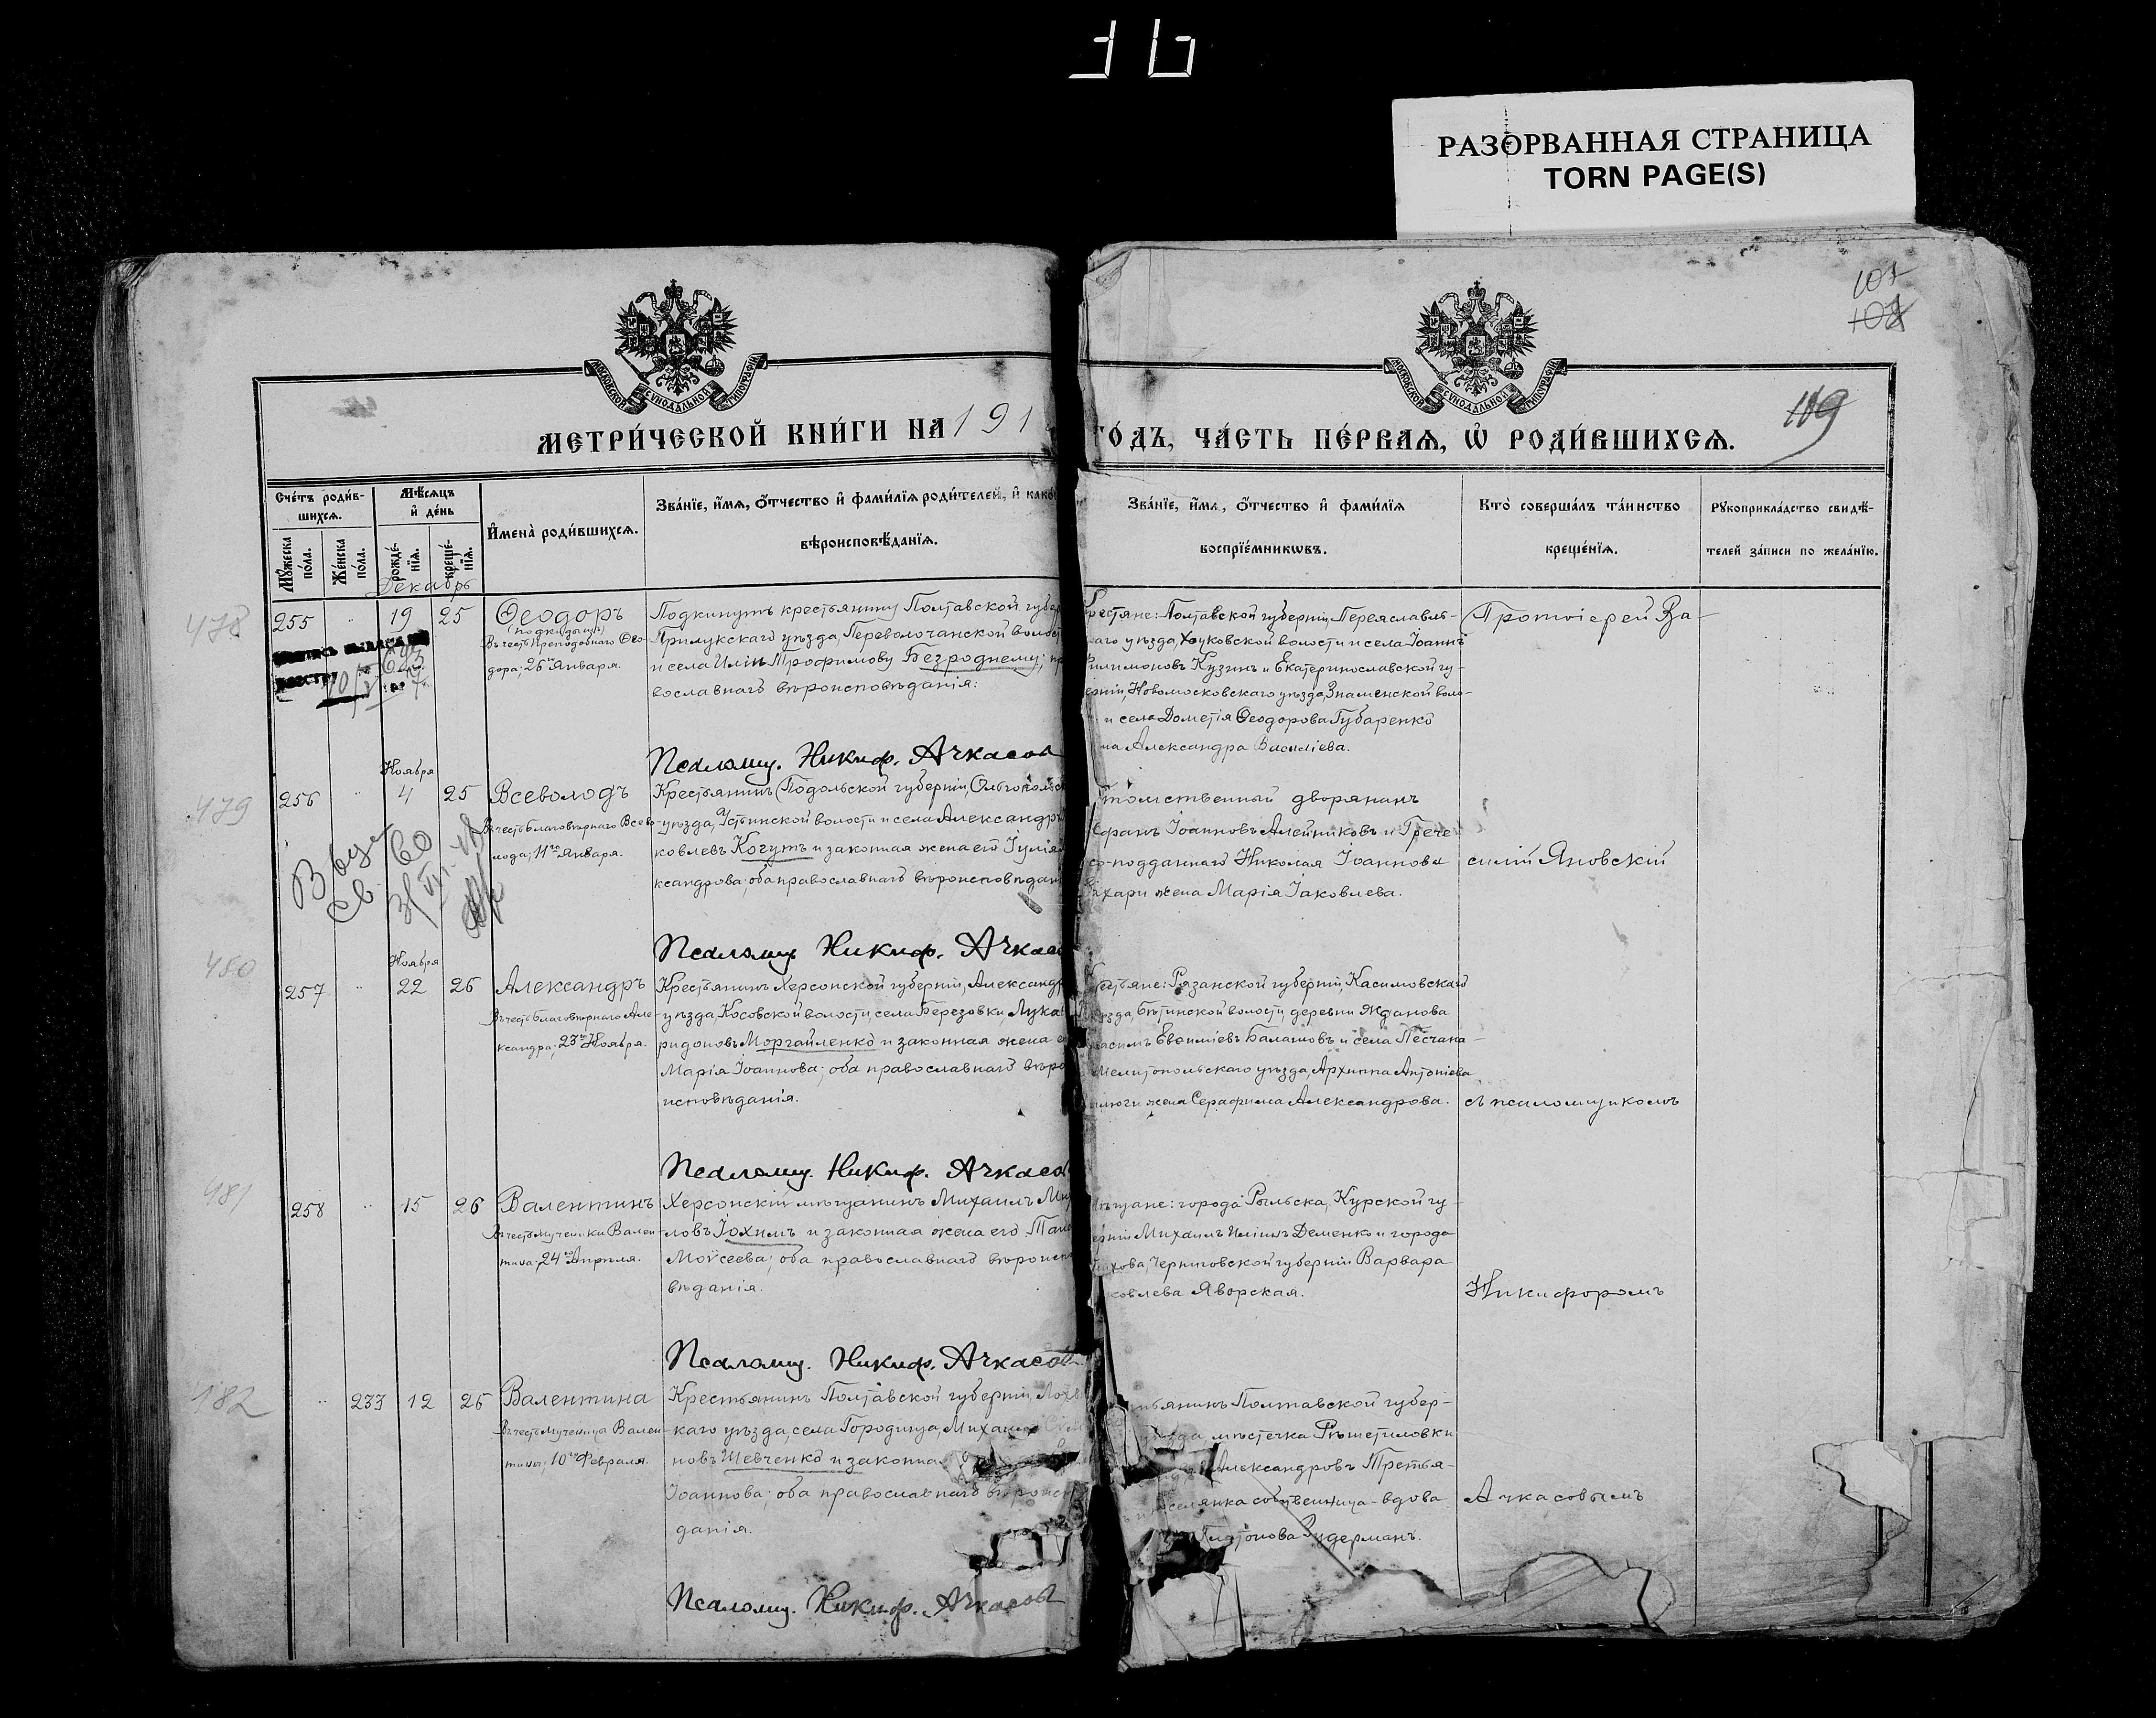 РАЗОРВАННАЯ СТРАНИЦА
TORN PAGE(S)
107
108
119
МОСКОВСКОЙ СѴНОДАЛЬНОЙ ТИПОГРАФІИ
МОСКОВСКОЙ СѴНОДАЛЬНОЙ ТИПОГРАФІИ
МЕТРИ́ЧЕСКОЙ КНИ́ГИ НА 191
ГО́ДЪ, ЧА́СТЬ ПЕ́РВАѦ, Ѡ҆ РОДИ́ВШИХСѦ.
Сче́тъ роди́в-
шихсѧ.
Мѣ́сѧцъ
и҆ де́нь
Мꙋ́жеска по́ла.
Же́нска по́ла.
рожде́-
нїѧ.
креще́-
нїѧ.
И҆мена̀ роди́вшихсѧ.
Зва́нїе, и҆́мѧ, ѻ҆́тчество и҆ фами́лїѧ роди́телей, и҆ како́
вѣроисповѣ́данїѧ.
Зва́нїе, и҆́мѧ, ѻ҆́тчество и҆ фами́лїѧ
воспрїе́мникѡвъ.
Кто̀ соверша́лъ та́инство
креще́нїѧ.
Рꙋкоприкла́дство свидѣ́-
телей за́писи по жела́нїю.
Декабрь
478
255 " 19 25 Ѳеодоръ
(подкидышъ)
Въ честь Преподобнаго Ѳео-
дора; 26 Января.
Подкинутъ крестьянину Полтавской губер
Прилукскаго уѣзда, Переволочанской волост
и села Иліи Трофимову Безродному; пр
вославнаго вѣроисповѣданія.
Псаломщ. Никиф. Ачкасов
рестяне: Полтавской губерніи, Переяславль-
каго уѣзда, волости и села Іоаннъ
Филимоновъ Кузинъ и Екатеринославской гу-
ерніи, Новомосковскаго уѣзда, Знаменской воло-
и села Дометія Ѳеодорова Губаренко
на Александра Василіева.
Протоіерей Ва-
479
Ноября
256 " 4 25 Всеволодъ
Въ честь благовѣрнаго Всево-
лода; 11го Января.
Крестьянинъ Подольской губерніи, Ольгопольск
уѣзда, Устьинской волости и села Александръ
ковлевъ Когутъ и законная жена его Іулія
ксандрова; оба православнаго вѣроисповѣдан
Псаломщ. Никиф. Ачкас
томственный дворянинъ
ефанъ Іоанновъ Алейниковъ и Грече
ко-подданнаго Николая Іоаннова
хари жена Марія Іаковлева.
силій Яновскій
480
Ноября
257 " 22 26 Александръ
Въ честь благовѣрнаго Але-
ксандра; 23го Ноября.
Крестьянинъ Херсонской губерніи, Александр
уѣзда, Косовской волости, села Березовки, Лука
ридоновъ Моргайленко и законная жена е
Марія Іоаннова; оба православнаго вѣро
исповѣданія.
Псаломщ. Никиф. Ачкасов
рестьяне: Рязанской губерніи, Касимовскаго
ѣзда, Бѣтинской волости, деревни Жданова
расимъ Евѳиміевъ Балашовъ и села Песчана-
Мелитопольскаго уѣзда, Архиппа Антоніева
жена Серафима Александрова.
съ псаломщикомъ
481
258 " 15 26 Валентинъ
Въ честь мученика Вален-
тина; 24го Апрѣля.
Херсонскій мѣщанинъ Михаилъ Ми
ловъ Іохимъ и законная жена его Тать
Моѵсеева; оба православнаго вѣроиспо
вѣданія.
Псаломщ. Никиф. Ачкасов
ѣщане: города Рыльска, Курской гу-
ерніи Михаилъ Иліинъ Деменко и города
Глухова, Черниговской губерніи Варвара
ковлева Яворская.
Никифоромъ
482
" 233 12 26 Валентина
Въ честь мученицы Вален-
тины; 10го Февраля.
Крестьянинъ Полтавской губерніи, Лохв
каго уѣзда, села Городища, Михаилъ
новъ Шевченко и законна
Іоаннова; оба православнаго вѣроиспо
данія.
Псаломщ. Никиф. Ачкасов
тьянинъ Полтавской губер-
ѣзда, мѣстечка Рѣшетиловки
Александровъ Третья-
и поселянка собственница-вдова
Платонова Рудерманъ.
Ачкасовымъ